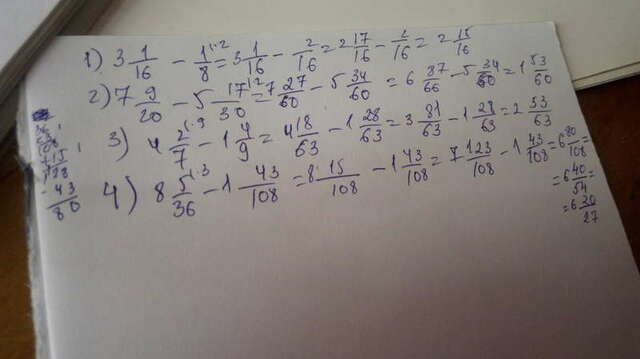 1) 3 1/16 - 1/8 = 3 1/16 - 2/16 = 2 17/16 - 2/16 = 2 15/16
2) 7 9/20 - 5 17/30 = 7 27/60 - 5 34/60 = 6 87/66 - 5 34/60 = 1 53/60
3) 4 2/7 - 1 4/9 = 4 18/63 - 1 28/63 = 3 81/63 - 1 28/63 = 2 53/63
4) 8 5/36 - 1 43/108 = 8 15/108 - 1 43/108 = 7 123/108 - 1 43/108 = 6 80/108 =
= 6 40/54 =
= 6 20/27